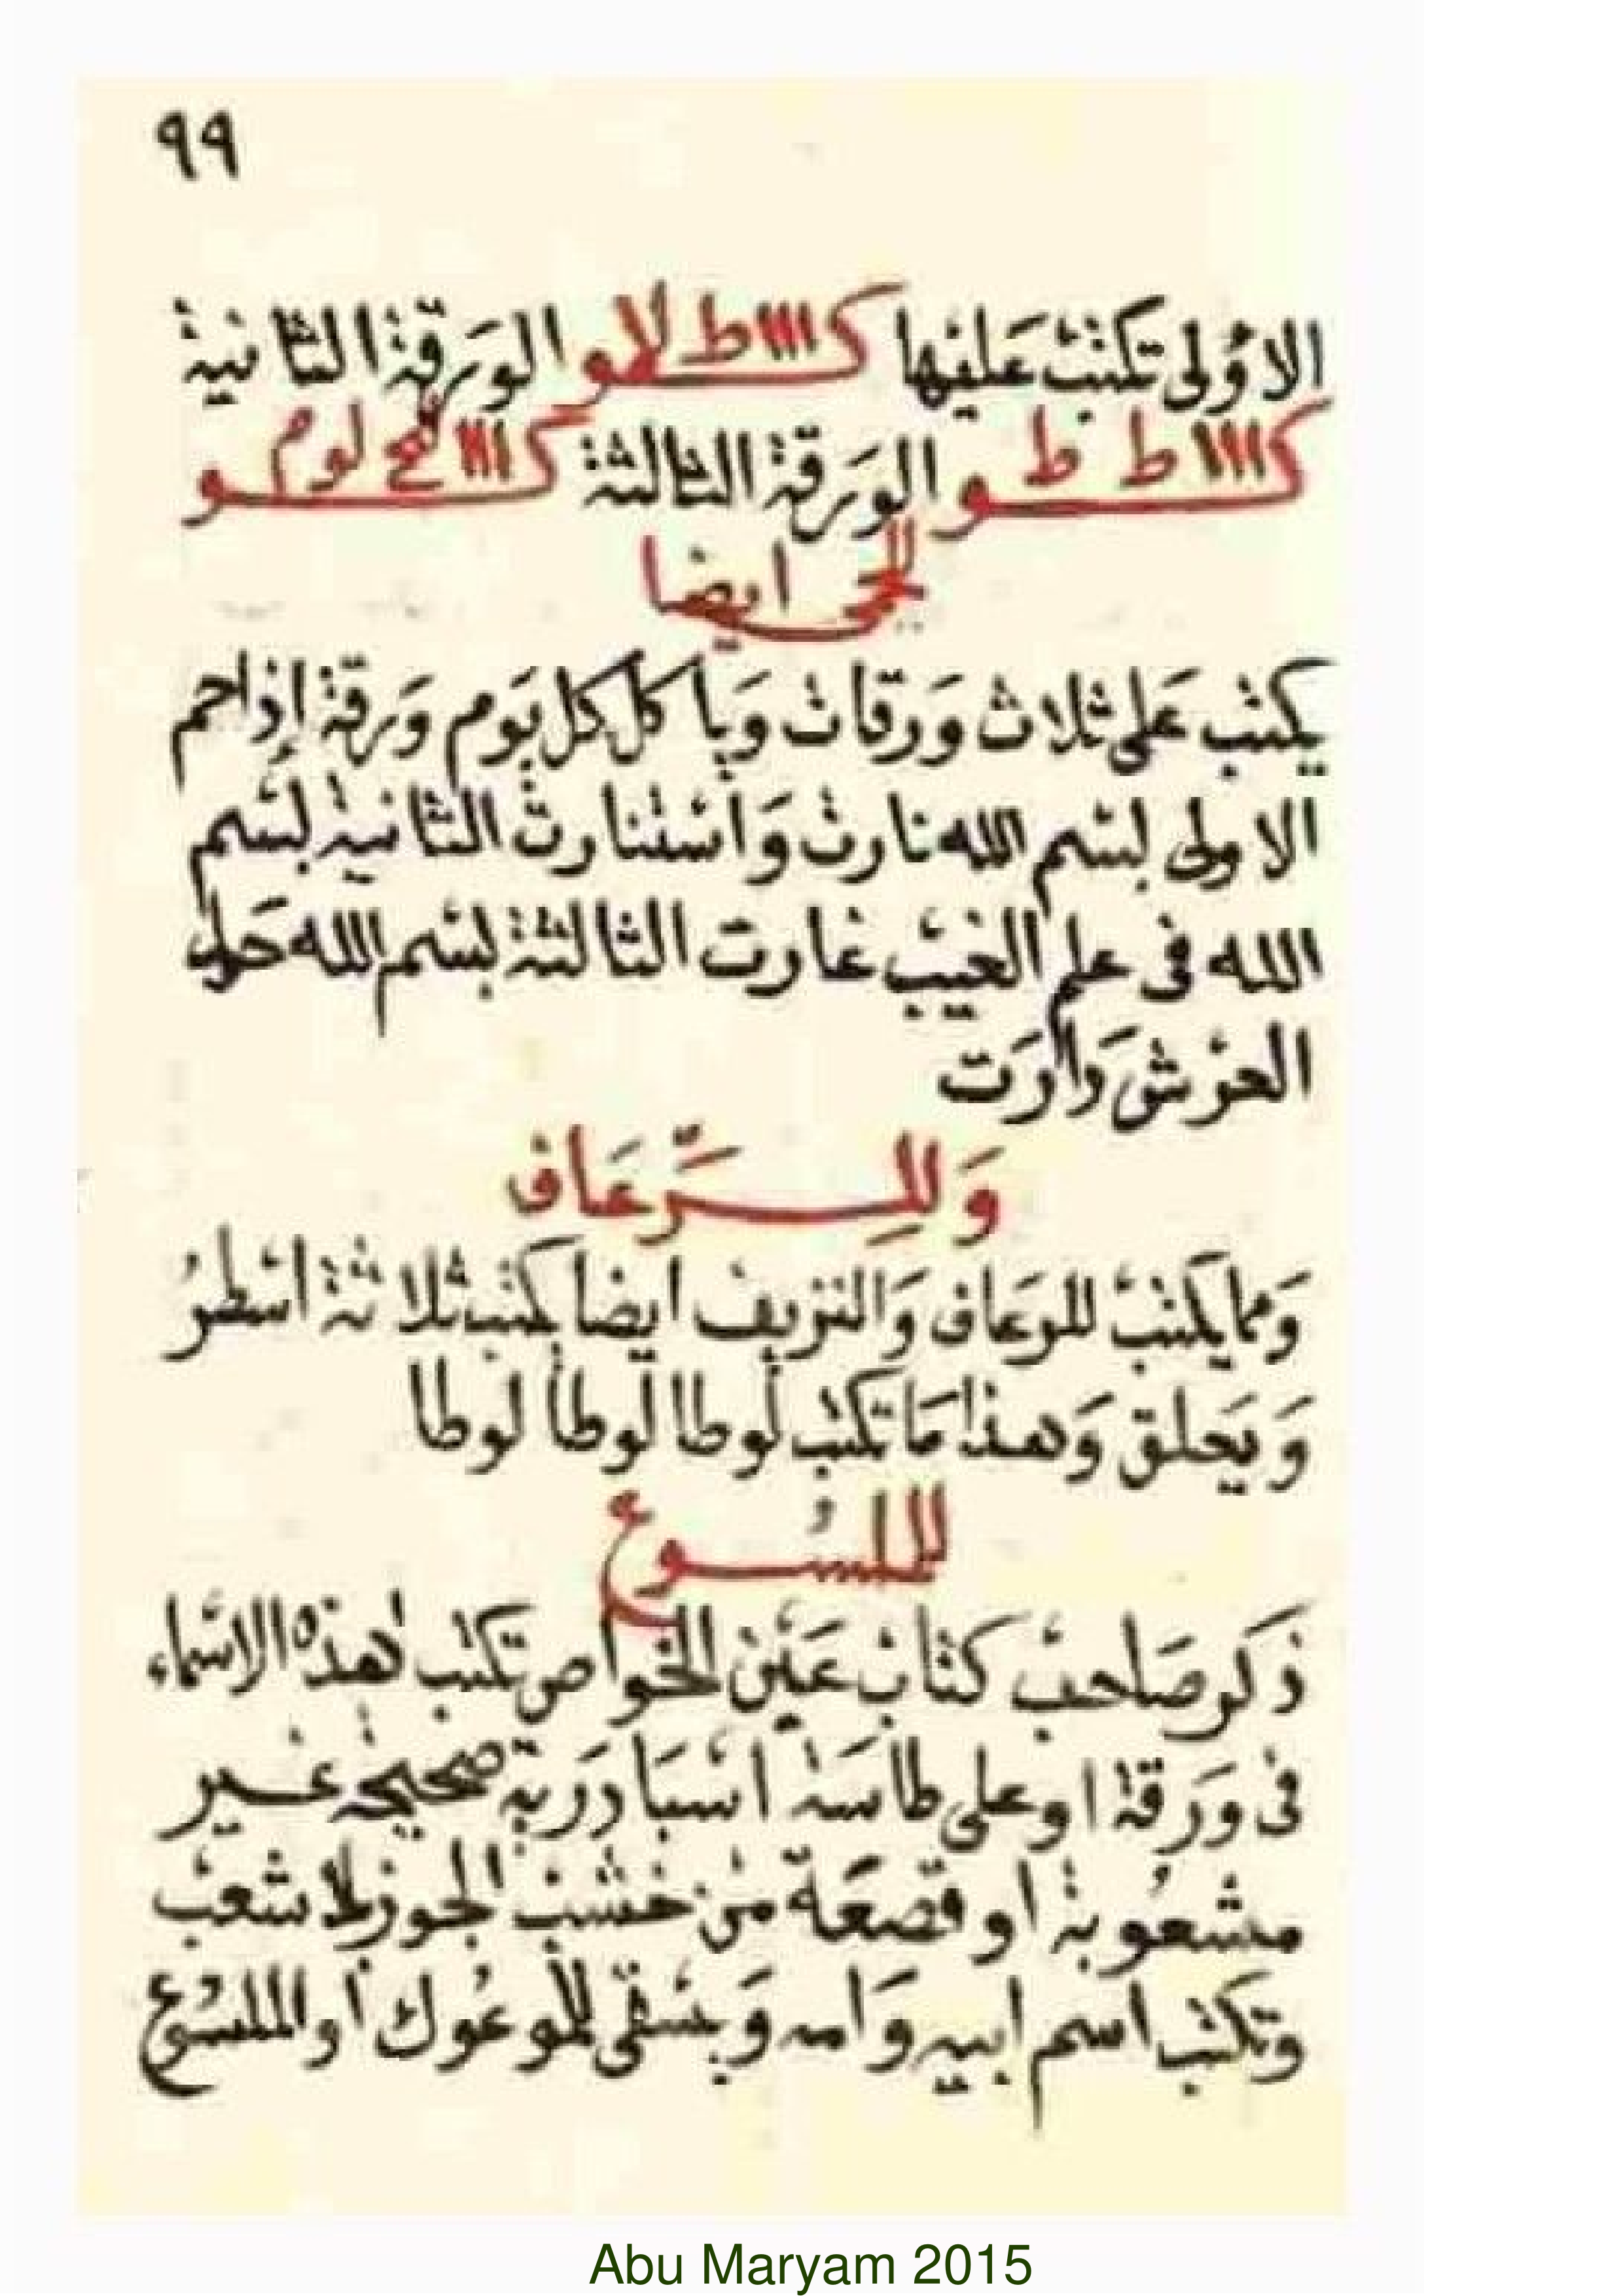 ٩٩
الاوُلى تكتبْ عَليْها ك ااا ط لا و الوَرقة الثانية
ك اااا ط ط و الوَرقة الثالثة ك ااا لوم و
للحمى ايضا
يكتب عَلى ثلاث وَرقات وَياكل كل يَوم وَرقة إذا حم
الاولى بسْم الله نارت وَاسْتنارتْ الثانية بسْم
الله فى علم الغيْب غارت الثالثة بسْم الله حَول
العرْش دَارَت
وَللِــرّعَاف
وَمما يكتبْ للرعَاف وَالنزيف ايضا يكتب ثلاثة اسْطرُ
وَ يَعلق وَهذا مَا تكتب لوطا لوطا لوطا لوطا
للملسُــوع
ذَكر صَاحبْ كتابْ عَيْن الخواص تكتب لهذه الاسْماء
فى وَرَقة او على طاسَة اسْبَادرَية صحيحة غــير
مشعُوبة او قصعَة منْ خشب الجوز بلا شعْب
وتكتب اسم ابيه وَامه وَيسْقى للموعُوك او الملسُوع
Abu Maryam 2015